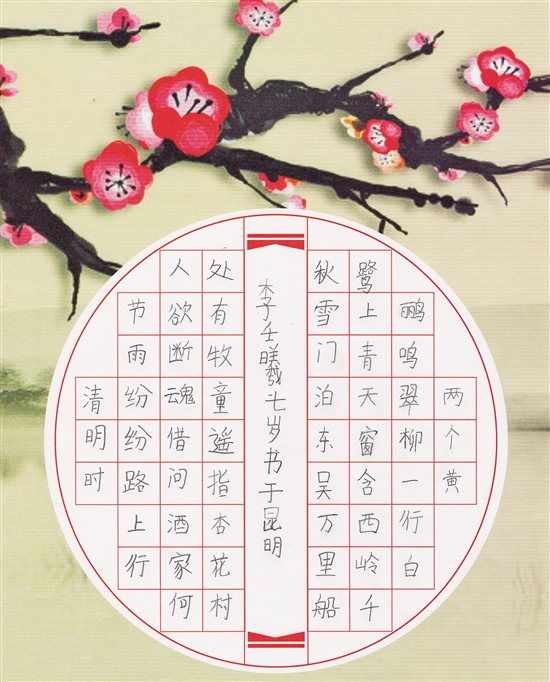 两个黄
鹂鸣翠柳一行白
鹭上青天窗含西岭千
秋雪门泊东吴万里船
李壬曦七岁书于昆明
清明时
节雨纷纷路上行
人欲断魂借问酒家何
处有牧童遥指杏花村